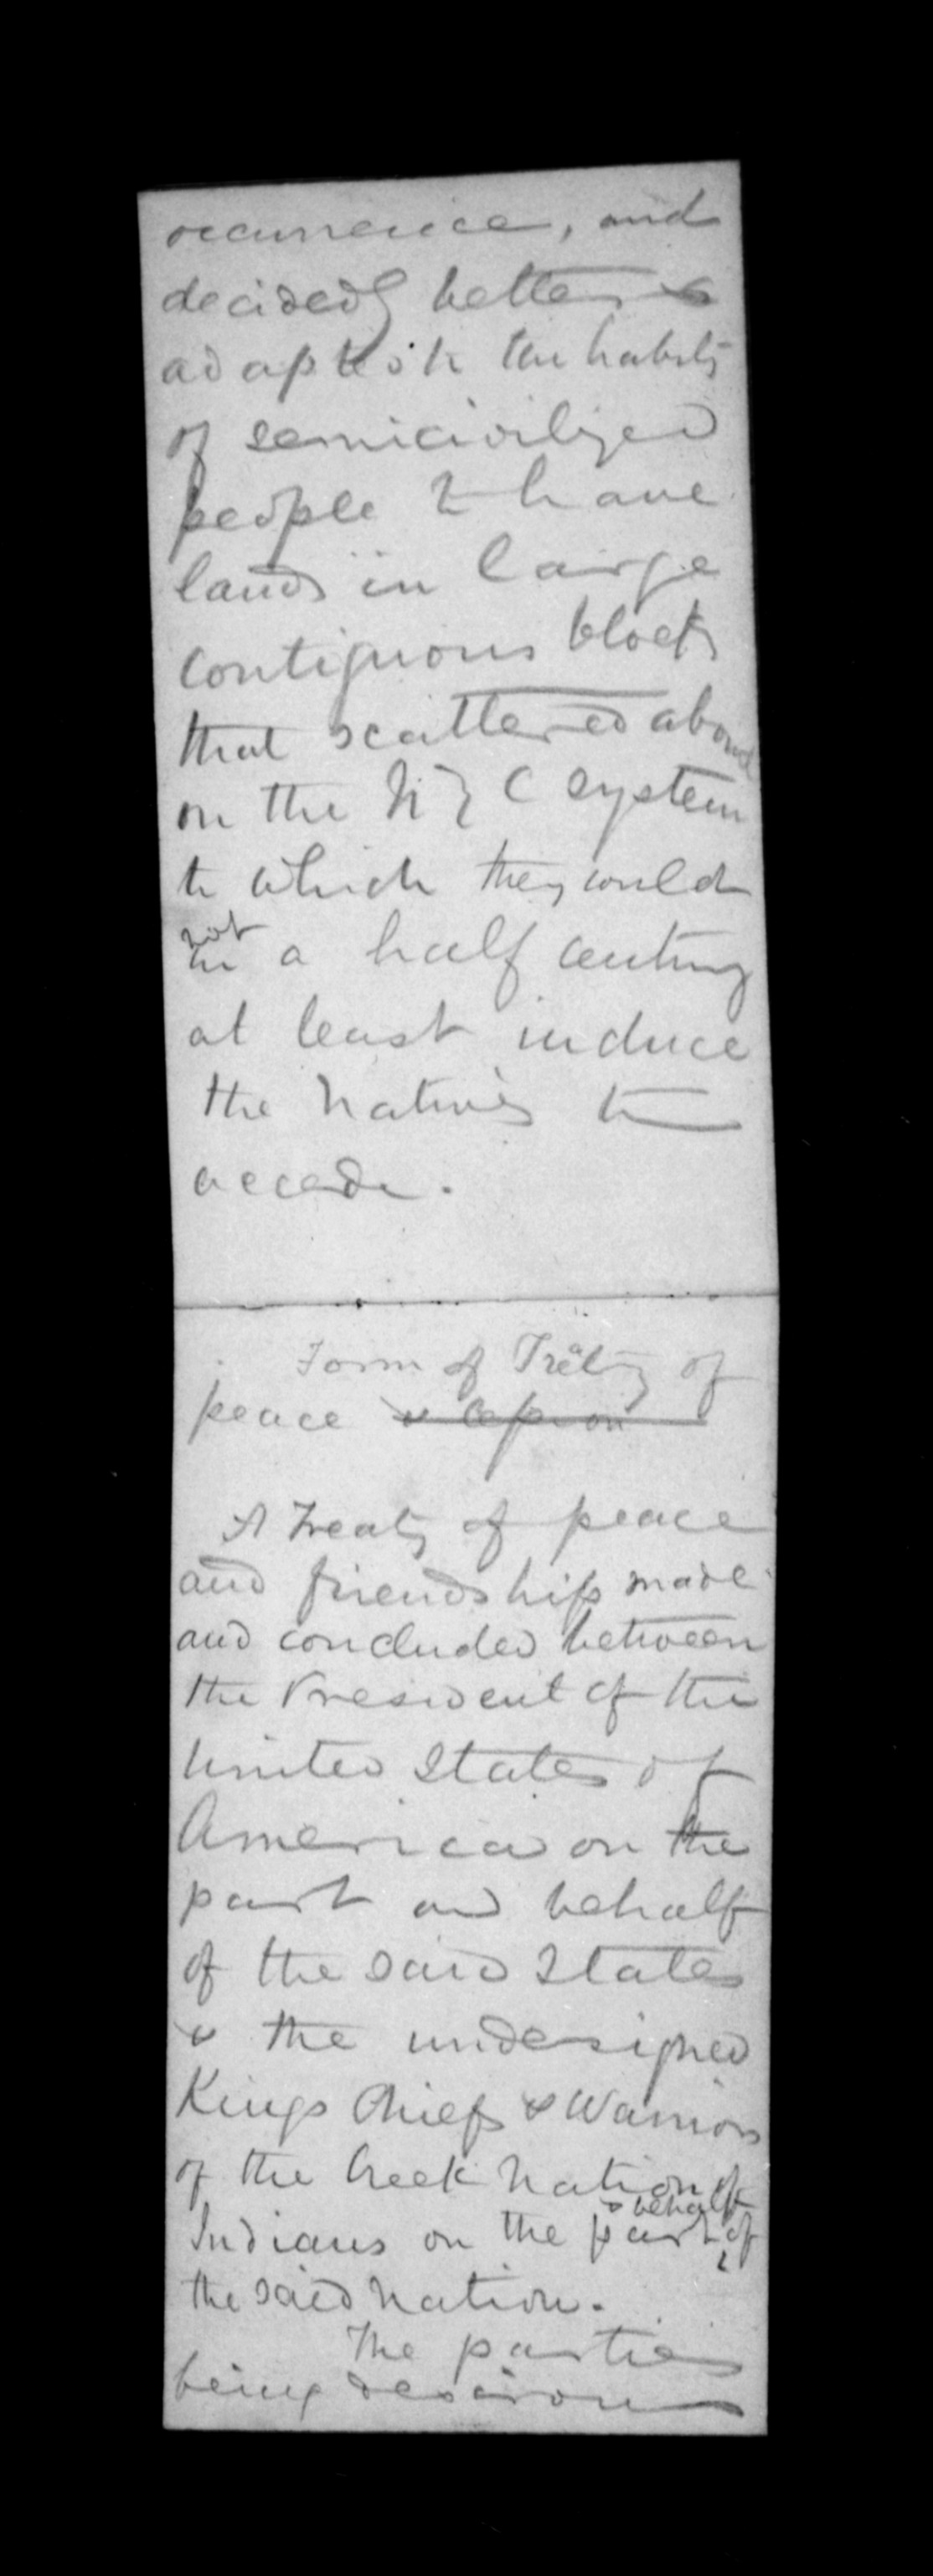 occurrence, and
decidedly better
adapted to the habits
of semicivilized
people to have
lands in large
contiguous blocks
that scattered about
on the N Z C system
to which they could
not in a half century
at least induce
the natives to
accede.
Form of Treaty of
peace & cession
A Treaty of peace
and friendship made
and concluded between
the President of the
United States of
America on the
part and behalf
of the said States
& the undesigned
Kings Chiefs & Warriors
of the Creek Nation of
Indians on the part & behalf of
the said nation.
The parties
being desirous